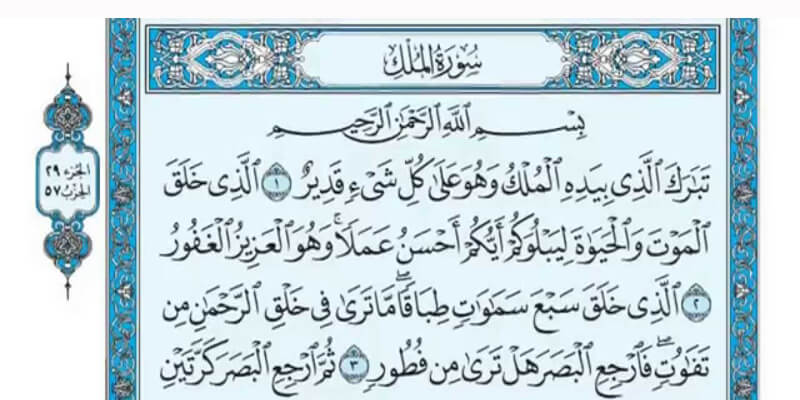 سُورَةُ الْمُلْكِ
بِسْمِ اللَّهِ الرَّحْمَٰنِ الرَّحِيمِ
الجزء ٢٩
الحزب ٥٧
تَبَارَكَ الَّذِي بِيَدِهِ الْمُلْكُ وَهُوَ عَلَىٰ كُلِّ شَيْءٍ قَدِيرٌ ١ الَّذِي خَلَقَ
الْمَوْتَ وَالْحَيَوٰةَ لِيَبْلُوَكُمْ أَيُّكُمْ أَحْسَنُ عَمَلًا ۚ وَهُوَ الْعَزِيزُ الْغَفُورُ
٢ الَّذِي خَلَقَ سَبْعَ سَمَٰوَٰتٍ طِبَاقًا ۖ مَّا تَرَىٰ فِي خَلْقِ الرَّحْمَٰنِ مِن
تَفَٰوُتٍ ۖ فَارْجِعِ الْبَصَرَ هَلْ تَرَىٰ مِن فُطُورٍ ٣ ثُمَّ ارْجِعِ الْبَصَرَ كَرَّتَيْنِ